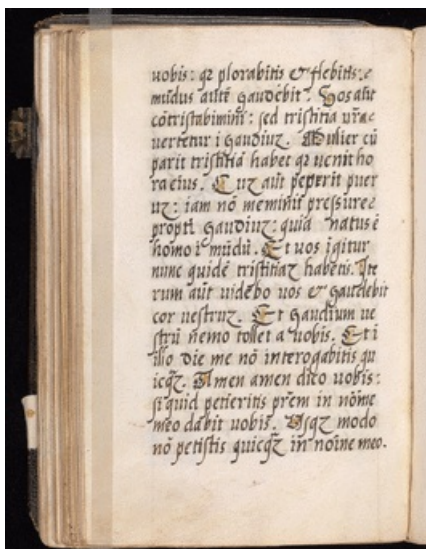 uobis: qꝛ plorabitis & flebitis:
mūdus autē gaudebit. Vos aūt
cōtristabimini: sed tristitia vr̄a
uertetur ī gaudiuꝫ. Mulier cū
parit tristitiā habet qꝛ uenit ho
ra eius. Cuꝫ aūt peperit puer
uꝫ: iam nō meminit pressure
propt̄ gaudiuꝫ: quia natus ē
homo ī mūdū. Et uos igitur
nunc quidē tristitiaꝫ habetis. Ite
rum aūt uidebo uos & gaudebit
cor uestruꝫ. Et gaudium ue
strū nemo tollet a uobis. Et i
illo die me nō interogabitis qu
icqꝫ. Amen amen dico uobis:
si quid petieritis pr̄em in nōīe
meo dabit uobis. Usqꝫ modo
nō petistis quicqꝫ in noīne meo.